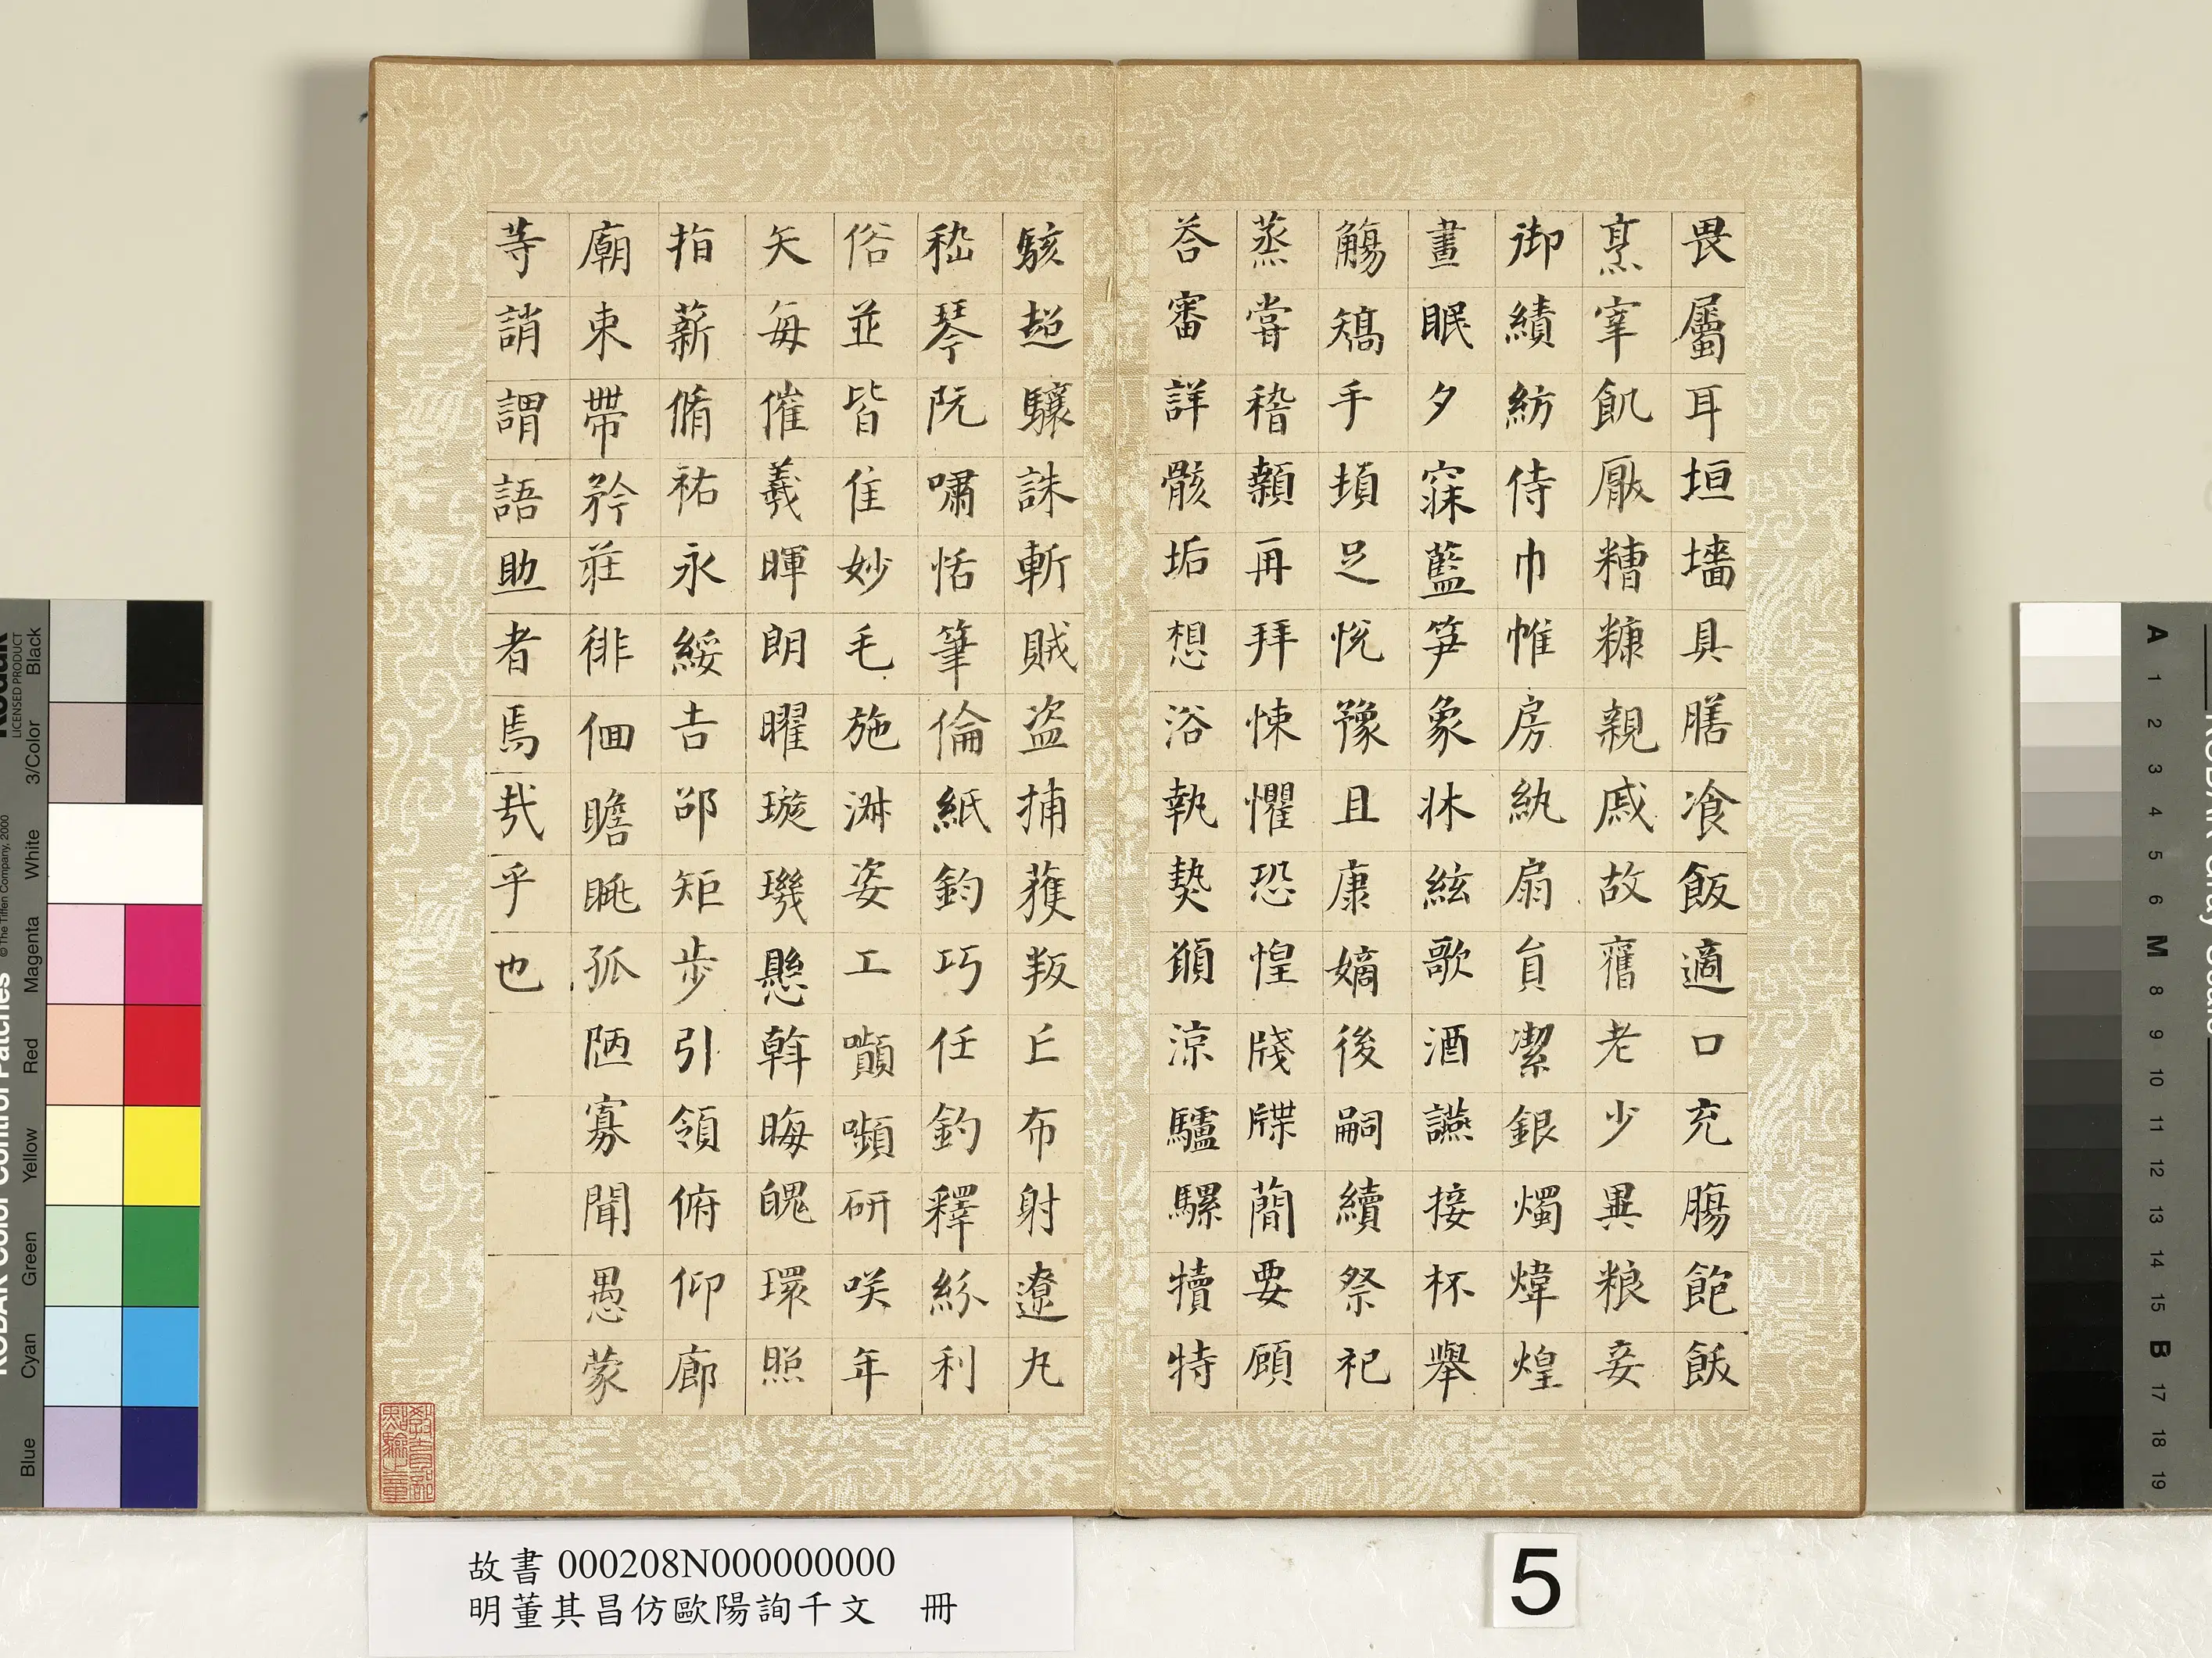 畏屬耳垣墻具膳飡飯適口充腸飽飫
烹宰飢厭糟糠親戚故舊老少異粮妾
御績紡侍巾帷房紈扇員潔銀燭煒煌
晝眠夕寐藍笋象牀絃歌酒讌接杯舉
觴矯手頓足悅豫且康嫡後嗣續祭祀
蒸嘗稽顙再拜悚懼恐惶牋牒蕳要顧
荅審詳骸垢想浴執熱願涼驢騾犢特
駭超驤誅斬賊盜捕獲叛亡布射遼丸
嵇琴阮嘯恬筆倫紙鈞巧任釣釋紛利
俗並皆佳妙毛施淋姿工嚬嚬研咲年
矢每催羲暉朗曜璇璣懸斡晦魄環照
指薪脩祐永綏吉邵矩步引領俯仰廊
廟束帶矜莊徘佪瞻眺孤陋寡聞愚蒙
等誚謂語助者焉哉乎也
故書 000208N000000000
明董其昌仿歐陽詢千文　冊
5
教育部點驗之章
Kodak
LICENSED PRODUCT
Black
3/Color
White
Magenta
Red
Yellow
Green
Cyan
Blue
© The Tiffen Company, 2000
KODAK Color Control Patches
KODAK Gray Scale
A 1 2 3 4 5 6 M 8 9 10 11 12 13 14 15 B 17 18 19